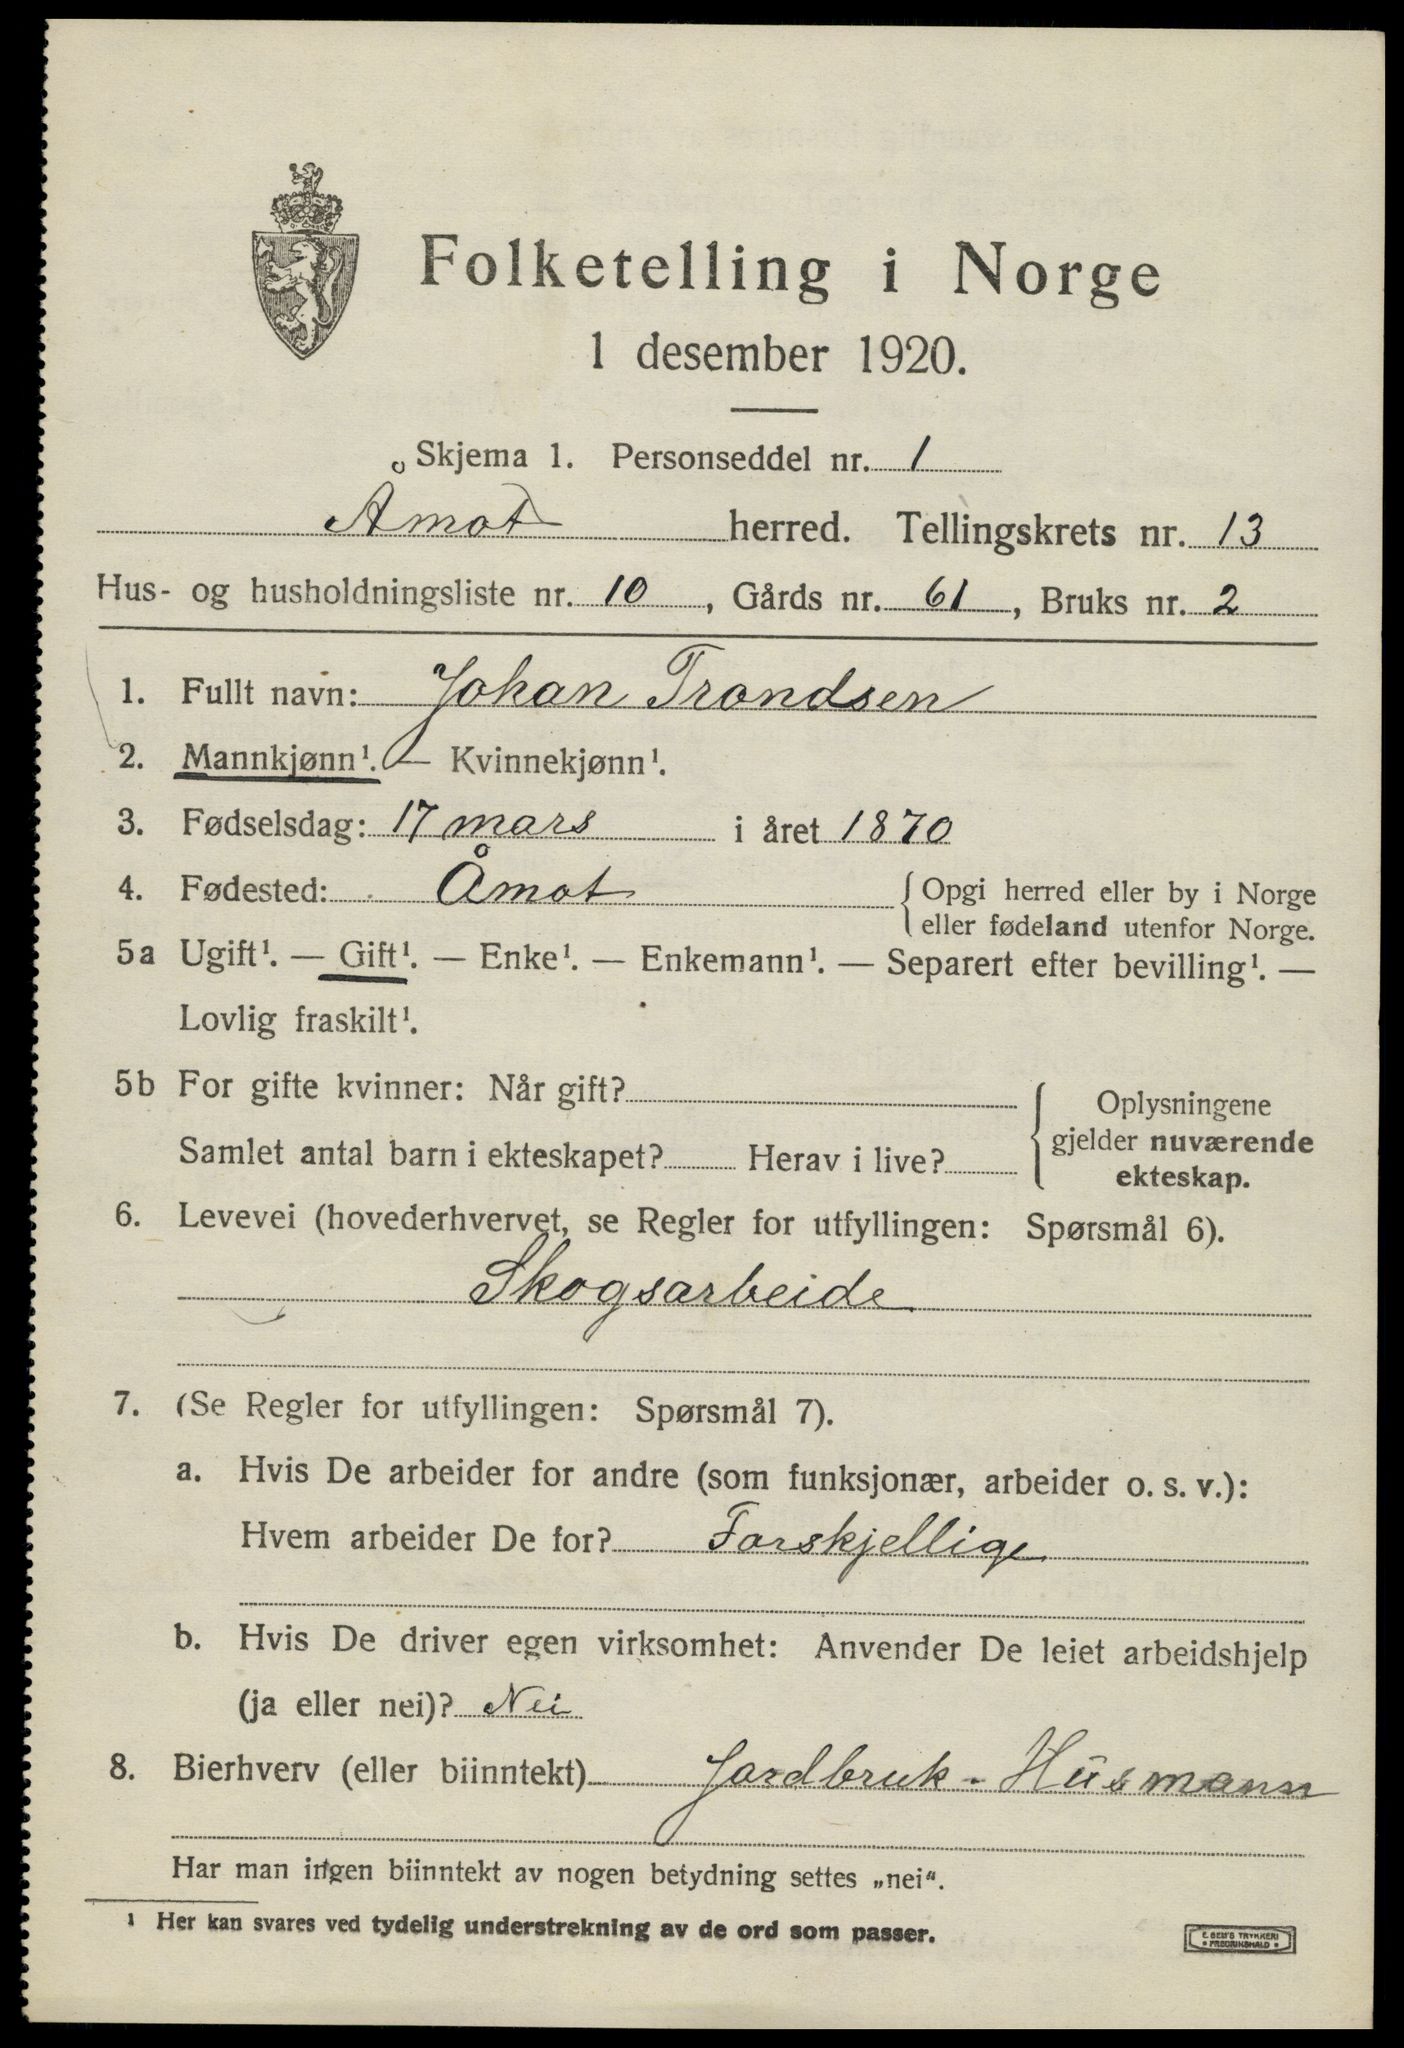 Folketelling i Norge
1 desember 1920.
Skjema 1. Personseddel nr. 1
Åmot herred. Tellingskrets nr. 13
Hus- og husholdningsliste nr. 10, Gårds nr. 61, Bruks nr. 2
1. Fullt navn: Johan Trondsen
2. Mannkjønn¹. — Kvinnekjønn¹.
3. Fødselsdag: 17 mars i året 1870
4. Fødested: Åmot { Opgi herred eller by i Norge
eller fødeland utenfor Norge.
5a Ugift¹. — Gift¹. — Enke¹. — Enkemann¹. — Separert efter bevilling¹. —
Lovlig fraskilt¹.
5b For gifte kvinner: Når gift?
Samlet antal barn i ekteskapet? Herav i live?
Oplysningene
gjelder nuværende
ekteskap.
6. Levevei (hovederhvervet, se Regler for utfyllingen: Spørsmål 6).
Skogsarbeide
7. (Se Regler for utfyllingen: Spørsmål 7).
a. Hvis De arbeider for andre (som funksjonær, arbeider o. s. v.):
Hvem arbeider De for? Forskjellige
b. Hvis De driver egen virksomhet: Anvender De leiet arbeidshjelp
(ja eller nei)? Nei
8. Bierhverv (eller biinntekt) Jordbruk - Husmann
Har man ingen biinntekt av nogen betydning settes „nei“.
¹ Her kan svares ved tydelig understrekning av de ord som passer.
E. SEM'S TRYKKERI
• FREDRIKSHALD •